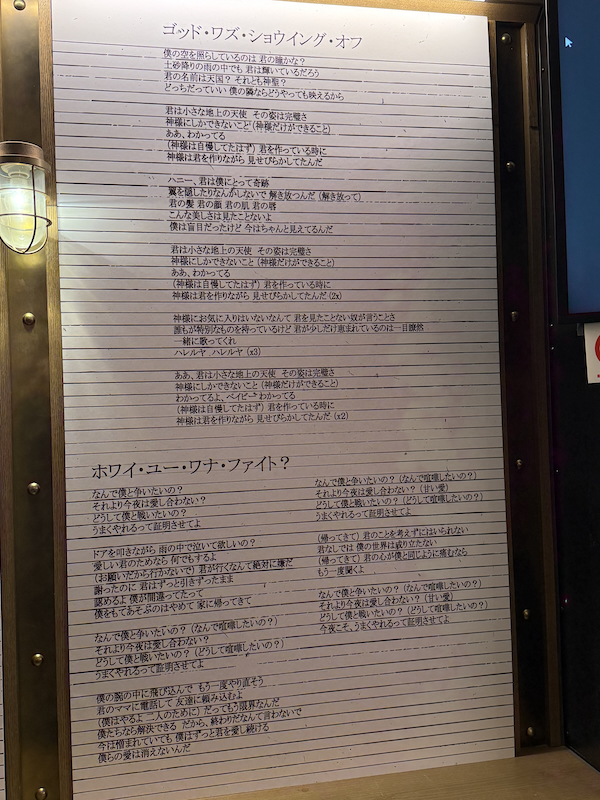 ゴッド・ワズ・ショウイング・オフ
僕の空を照らしているのは 君の瞳かな？
土砂降りの雨の中でも 君は輝いているだろう
君の名前は天国？ それとも神聖？
どっちだっていい 僕の隣ならどうやっても映えるから
君は小さな地上の天使 その姿は完璧さ
神様にしかできないこと（神様だけができること）
ああ、わかってる
（神様は自慢してたはず）君を作っている時に
神様は君を作りながら 見せびらかしてたんだ
ハニー、君は僕にとって奇跡
翼を隠したりなんかしないで 解き放つんだ（解き放って）
君の髪 君の顔 君の肌 君の唇
こんな美しさは見たことないよ
僕は盲目だったけど 今はちゃんと見えてるんだ
君は小さな地上の天使 その姿は完璧さ
神様にしかできないこと（神様だけができること）
ああ、わかってる
（神様は自慢してたはず）君を作っている時に
神様は君を作りながら 見せびらかしてたんだ (2x)
神様にお気に入りはいないなんて 君を見たことない奴が言うことさ
誰もが特別なものを持っているけど 君が少しだけ恵まれているのは一目瞭然
一緒に歌ってくれ
ハレルヤ ハレルヤ (x3)
ああ、君は小さな地上の天使 その姿は完璧さ
神様にしかできないこと（神様だけができること）
わかってるよ、ベイビー わかってる
（神様は自慢してたはず）君を作っている時に
神様は君を作りながら 見せびらかしてたんだ (x2)
ホワイ・ユー・ワナ・ファイト？
なんで僕と争いたいの？
それより今夜は愛し合わない？
どうして僕と戦いたい？
うまくやれるって証明させてよ
ドアを叩きながら 雨の中で泣いて欲しいの？
愛しい君のためなら 何でもするよ
（お願いだから行かないで）君が行くなんて絶対に嫌だ
謝ったのに 君はずっと引きずったまま
認めるよ 僕が間違ってたって
僕をもてあそぶのはやめて 家に帰ってきて
なんで僕と争いたいの？（なんで喧嘩したいの？）
それより今夜は愛し合わない？
どうして僕と戦いたい？（どうして喧嘩したいの？）
うまくやれるって証明させてよ
僕の腕の中に飛び込んで もう一度やり直そう
君のママに電話して 友達に頼み込むよ
（僕はやるよ 二人のために）だってもう限界なんだ
僕たちなら解決できる だから、終わりだなんて言わないで
今は憎まれていても 僕はずっと君を愛し続ける
僕らの愛は消えないんだ
なんで僕と争いたいの？（なんで喧嘩したいの？）
それより今夜は愛し合わない？（甘い愛）
どうして僕と戦いたい？（どうして喧嘩したいの？）
うまくやれるって証明させてよ
（帰ってきて）君のことを考えずにはいられない
君なしでは 僕の世界は成り立たない
（帰ってきて）君の心が僕と同じように痛むなら
もう一度聞くよ
なんで僕と争いたいの？（なんで喧嘩したいの？）
それより今夜は愛し合わない？（甘い愛）
どうして僕と戦いたい？（どうして喧嘩したいの？）
今夜こそ、うまくやれるって証明させてよ